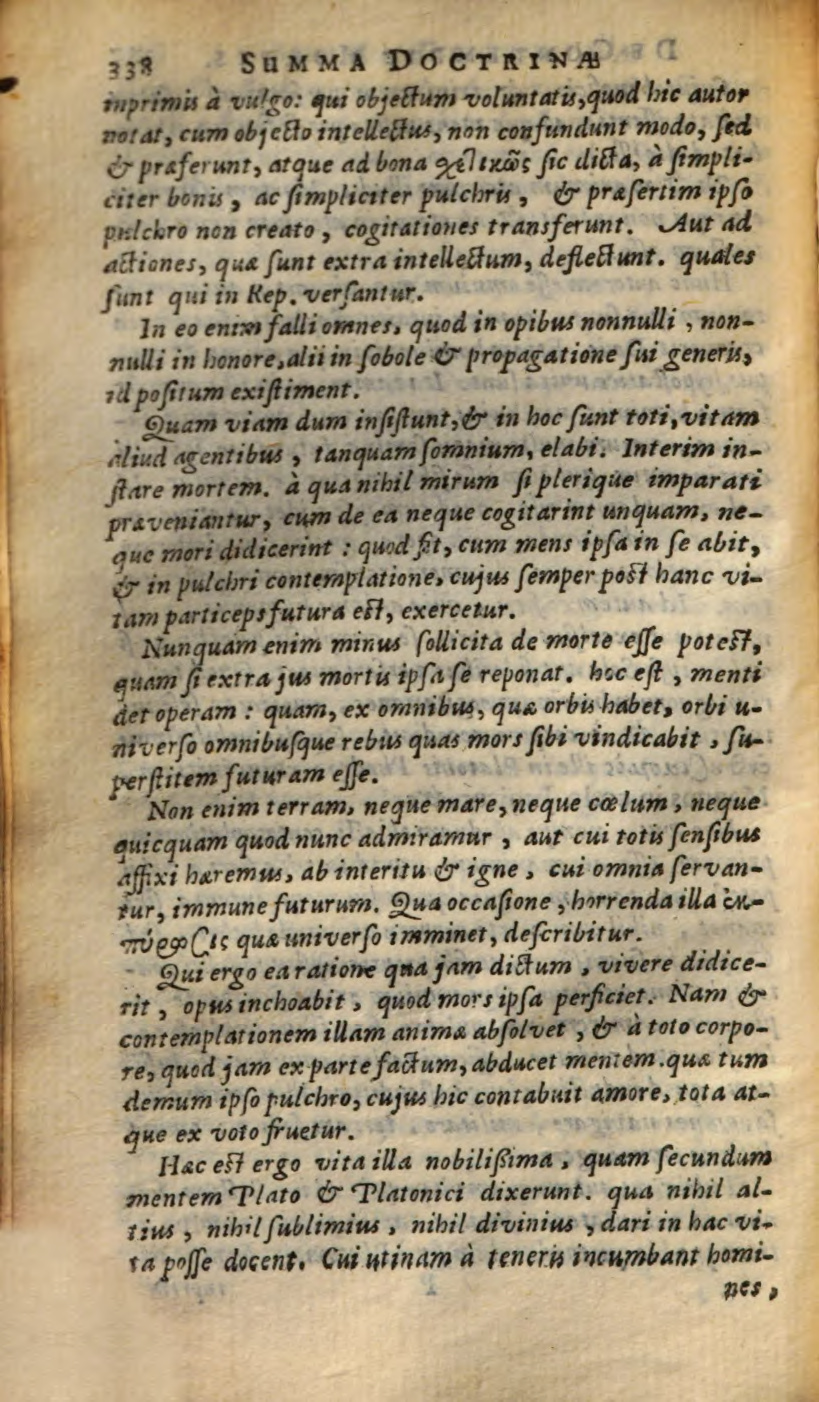 338 SUMMA DOCTRINÆ
inprimis à vulgo: qui objectum voluntatis, quod hic autor
notat, cum objecto intellectus, non confundunt modo, sed
& præferunt, atque ad bona χετικῶς sic dicta, à simpli-
citer bonis, ac simpliciter pulchris, & præsertim ipso
pulchro non creato, cogitationes transferunt. Aut ad
actiones, quæ sunt extra intellectum, deflectunt. quales
sunt qui in Rep. versantur.
In eo enim falli omnes, quod in opibus nonnulli, non-
nulli in honore, alii in sobole & propagatione sui generis,
id positum existiment.
Quam viam dum insistunt, & in hoc sunt toti, vitam
aliud agentibus, tanquam somnium, elabi. Interim in-
stare mortem. à qua nihil mirum si plerique imparati
præveniantur, cum de ea neque cogitarint unquam, ne-
que mori didicerint : quod fit, cum mens ipsa in se abit,
& in pulchri contemplatione, cujus semper post hanc vi-
tam particeps futura est, exercetur.
Nunquam enim minus sollicita de morte esse potest,
quam si extra jus mortis ipsa se reponat. hoc est, menti
det operam : quam, ex omnibus, quæ orbis habet, orbi u-
niverso omnibusque rebus quas mors sibi vindicabit, su-
perstitem futuram esse.
Non enim terram, neque mare, neque cœlum, neque
quicquam quod nunc admiramur, aut cui totis sensibus
affixi hæremus, ab interitu & igne, cui omnia servan-
tur, immune futurum. Qua occasione, horrenda illa ἐκ-
πύρωσις quæ universo imminet, describitur.
Qui ergo ea ratione qua jam dictum, vivere didice-
rit, opus inchoabit, quod mors ipsa perficiet. Nam &
contemplationem illam animæ absolvet, & à toto corpo-
re, quod jam ex parte factum, abducet mentem. quæ tum
demum ipso pulchro, cujus hic contabuit amore, tota at-
que ex voto fruetur.
Hæc est ergo vita illa nobilißima, quam secundum
mentem Plato & Platonici dixerunt. qua nihil al-
tius, nihil sublimius, nihil divinius, dari in hac vi-
ta posse docent. Cui utinam à teneris incumbant homi-
nes,